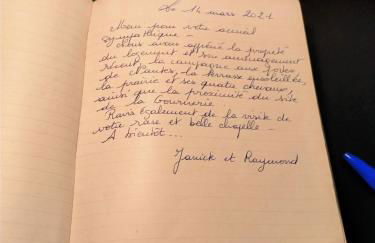 Le 14 mars 2021
Merci pour votre accueil
sympathique -
Nous avons apprécié la propreté
du logement et son aménagement
récent, la campagne aux portes
de Nantes, la terrasse ensoleillée,
la prairie et ses quatre chevaux,
ainsi que la proximité du site
de la Gournerie
Ravis également de la visite de
votre rare et belle chapelle -
A bientôt ...
Janick et Raymond